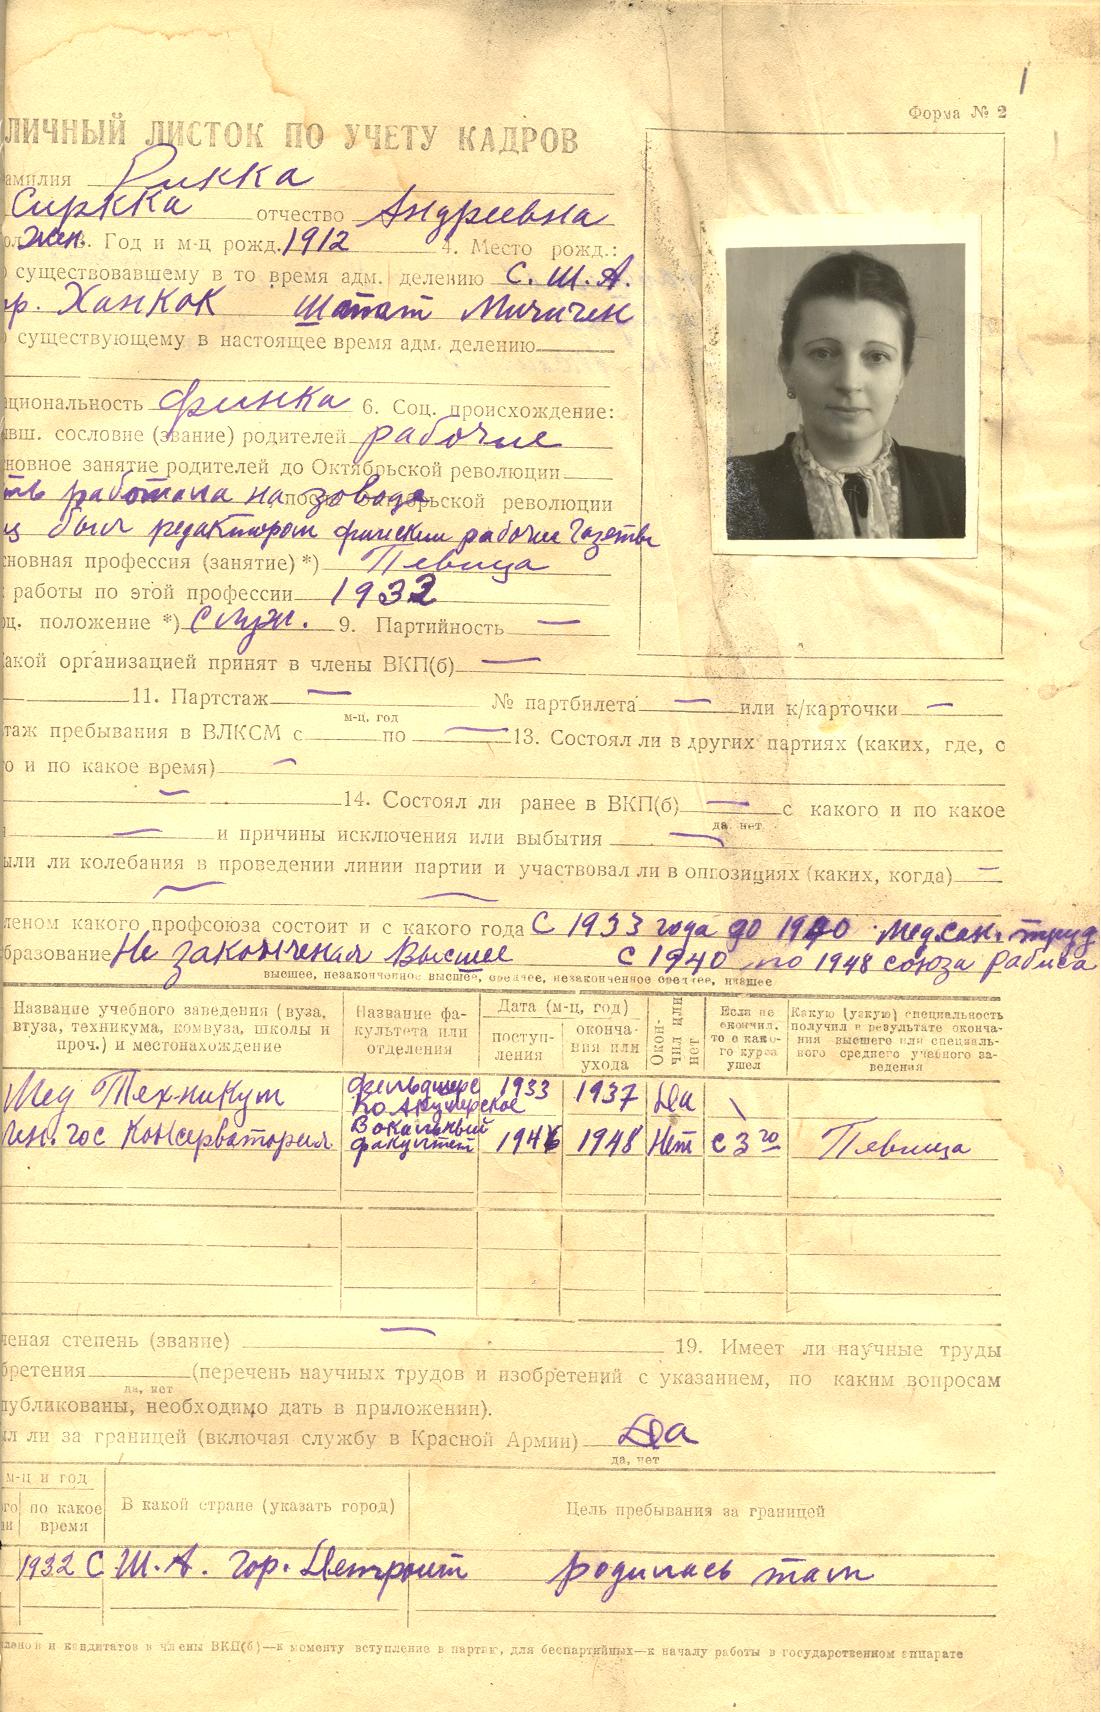 1
Форма № 2
ЛИЧНЫЙ ЛИСТОК ПО УЧЕТУ КАДРОВ
амилия Рикка
Сиркка отчество Андреевна
ол жен. 3. Год и м-ц рожд. 1912 4. Место рожд.:
о существовавшему в то время адм. делению С. Ш. А.
ор. Ханкок Штат Мичиген
о существующему в настоящее время адм. делению
циональность финка 6. Соц. происхождение:
бывш. сословие (звание) родителей рабочие
новное занятие родителей до Октябрьской революции
ть работала на заводе, после Октябрьской революции
ец был редактором финский рабочие Газеты
сновная профессия (занятие) *) Певица
работы по этой профессии 1932
оц. положение *) служ. 9. Партийность —
акой организацией принят в члены ВКП(б) —
11. Партстаж — № партбилета — или к/карточки —
м-ц, год
таж пребывания в ВЛКСМ с по — 13. Состоял ли в других партиях (каких, где, с
о и по какое время) —
— 14. Состоял ли ранее в ВКП(б) — с какого и по какое
да, нет
— и причины исключения или выбытия —
ыли ли колебания в проведении линии партии и участвовал ли в оппозициях (каких, когда) —
— —
леном какого профсоюза состоит и с какого года С 1933 года до 1940 Медсан. труд
бразование Не законченая Высшее С 1940 по 1948 союза рабиса
высшее, незаконченное высшее, среднее, незаконченное среднее, низшее
Название учебного заведения (вуза, втуза, техникума, комвуза, школы и проч.) и местонахождение
Название факультета или отделения
Дата (м-ц, год)
поступления
окончания или ухода
Окончил или нет
Если не окончил, то с какого курса ушел
Какую (узкую) специальность получил в результате окончания высшего или специального среднего учебного заведения
Мед Техникум фельдшерско Акушерское 1933 1937 Да \
Лен. гос Консерватория Вокальный факультет 1946 1948 Нет с 3го Певица
ченая степень (звание) — 19. Имеет ли научные труды
бретения (перечень научных трудов и изобретений с указанием, по каким вопросам
да, нет
публикованы, необходимо дать в приложении).
ыл ли за границей (включая службу в Красной Армии) Да
да, нет
м-ц и год
го по какое время
В какой стране (указать город)
Цель пребывания за границей
1932 С. Ш. А. гор. Детроит родилась там
членов и кандидатов в члены ВКП(б)—к моменту вступления в партию, для беспартийных—к началу работы в государственном аппарате